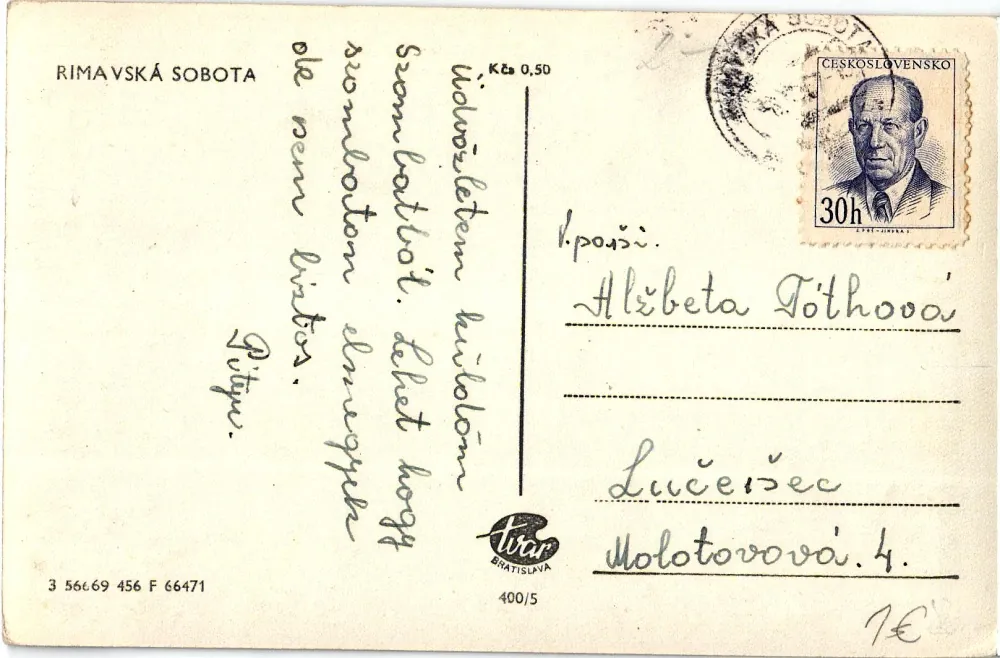 RIMAVSKÁ SOBOTA
Kčs 0,50
Üdvözletem küldöm
Szombatból. Lehet hogy
szombaton elmegyek
de sem biztos.
3 56669 456 F 66471
tvar
BRATISLAVA
400/5
RIMAVSKÁ SOBOTA
ČESKOSLOVENSKO
30h
Alžbeta Tóthová
Lučeňec
Molotovová. 4.
1€